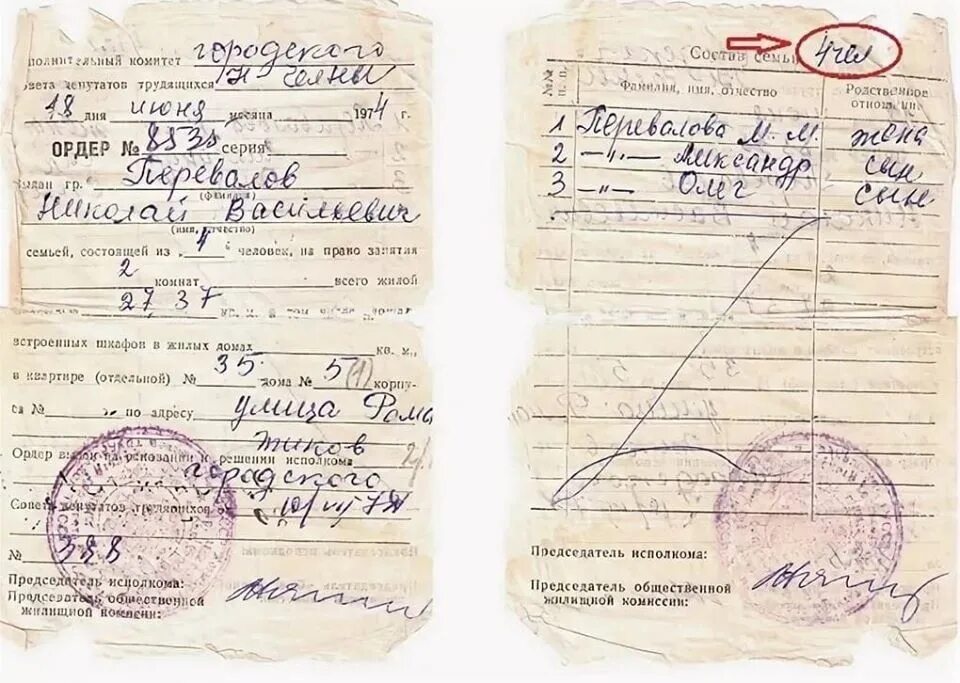 полнительный комитет городского
овета депутатов трудящихся Н Челны
18 дня июня месяца 1974 г.
ОРДЕР № серия
ыдан гр. Перевалов
(фамилия)
Николай Васильевич
(имя, отчество)
семьей, состоящей из 4 человек, на право занятия
2 комнат всего жилой
27,37
встроенных шкафов в жилых домах кв. м.,
в квартире (отдельной) № 35 дома № 5 (1) корпу-
са № по адресу улица Рома
жиков
Ордер выдан на основании решения исполкома
городского
Совета депутатов трудящихся от
№ 388
Председатель исполкома:
Председатель общественной
жилищной комиссии:
Состав семьи 4 чел
№№ п. п.
Фамилия, имя, отчество
Родственное отношение
1 Перевалова М. М. жена
2 —„— Александр сын
3 —„— Олег сын
Председатель исполкома:
Председатель общественной
жилищной комиссии: